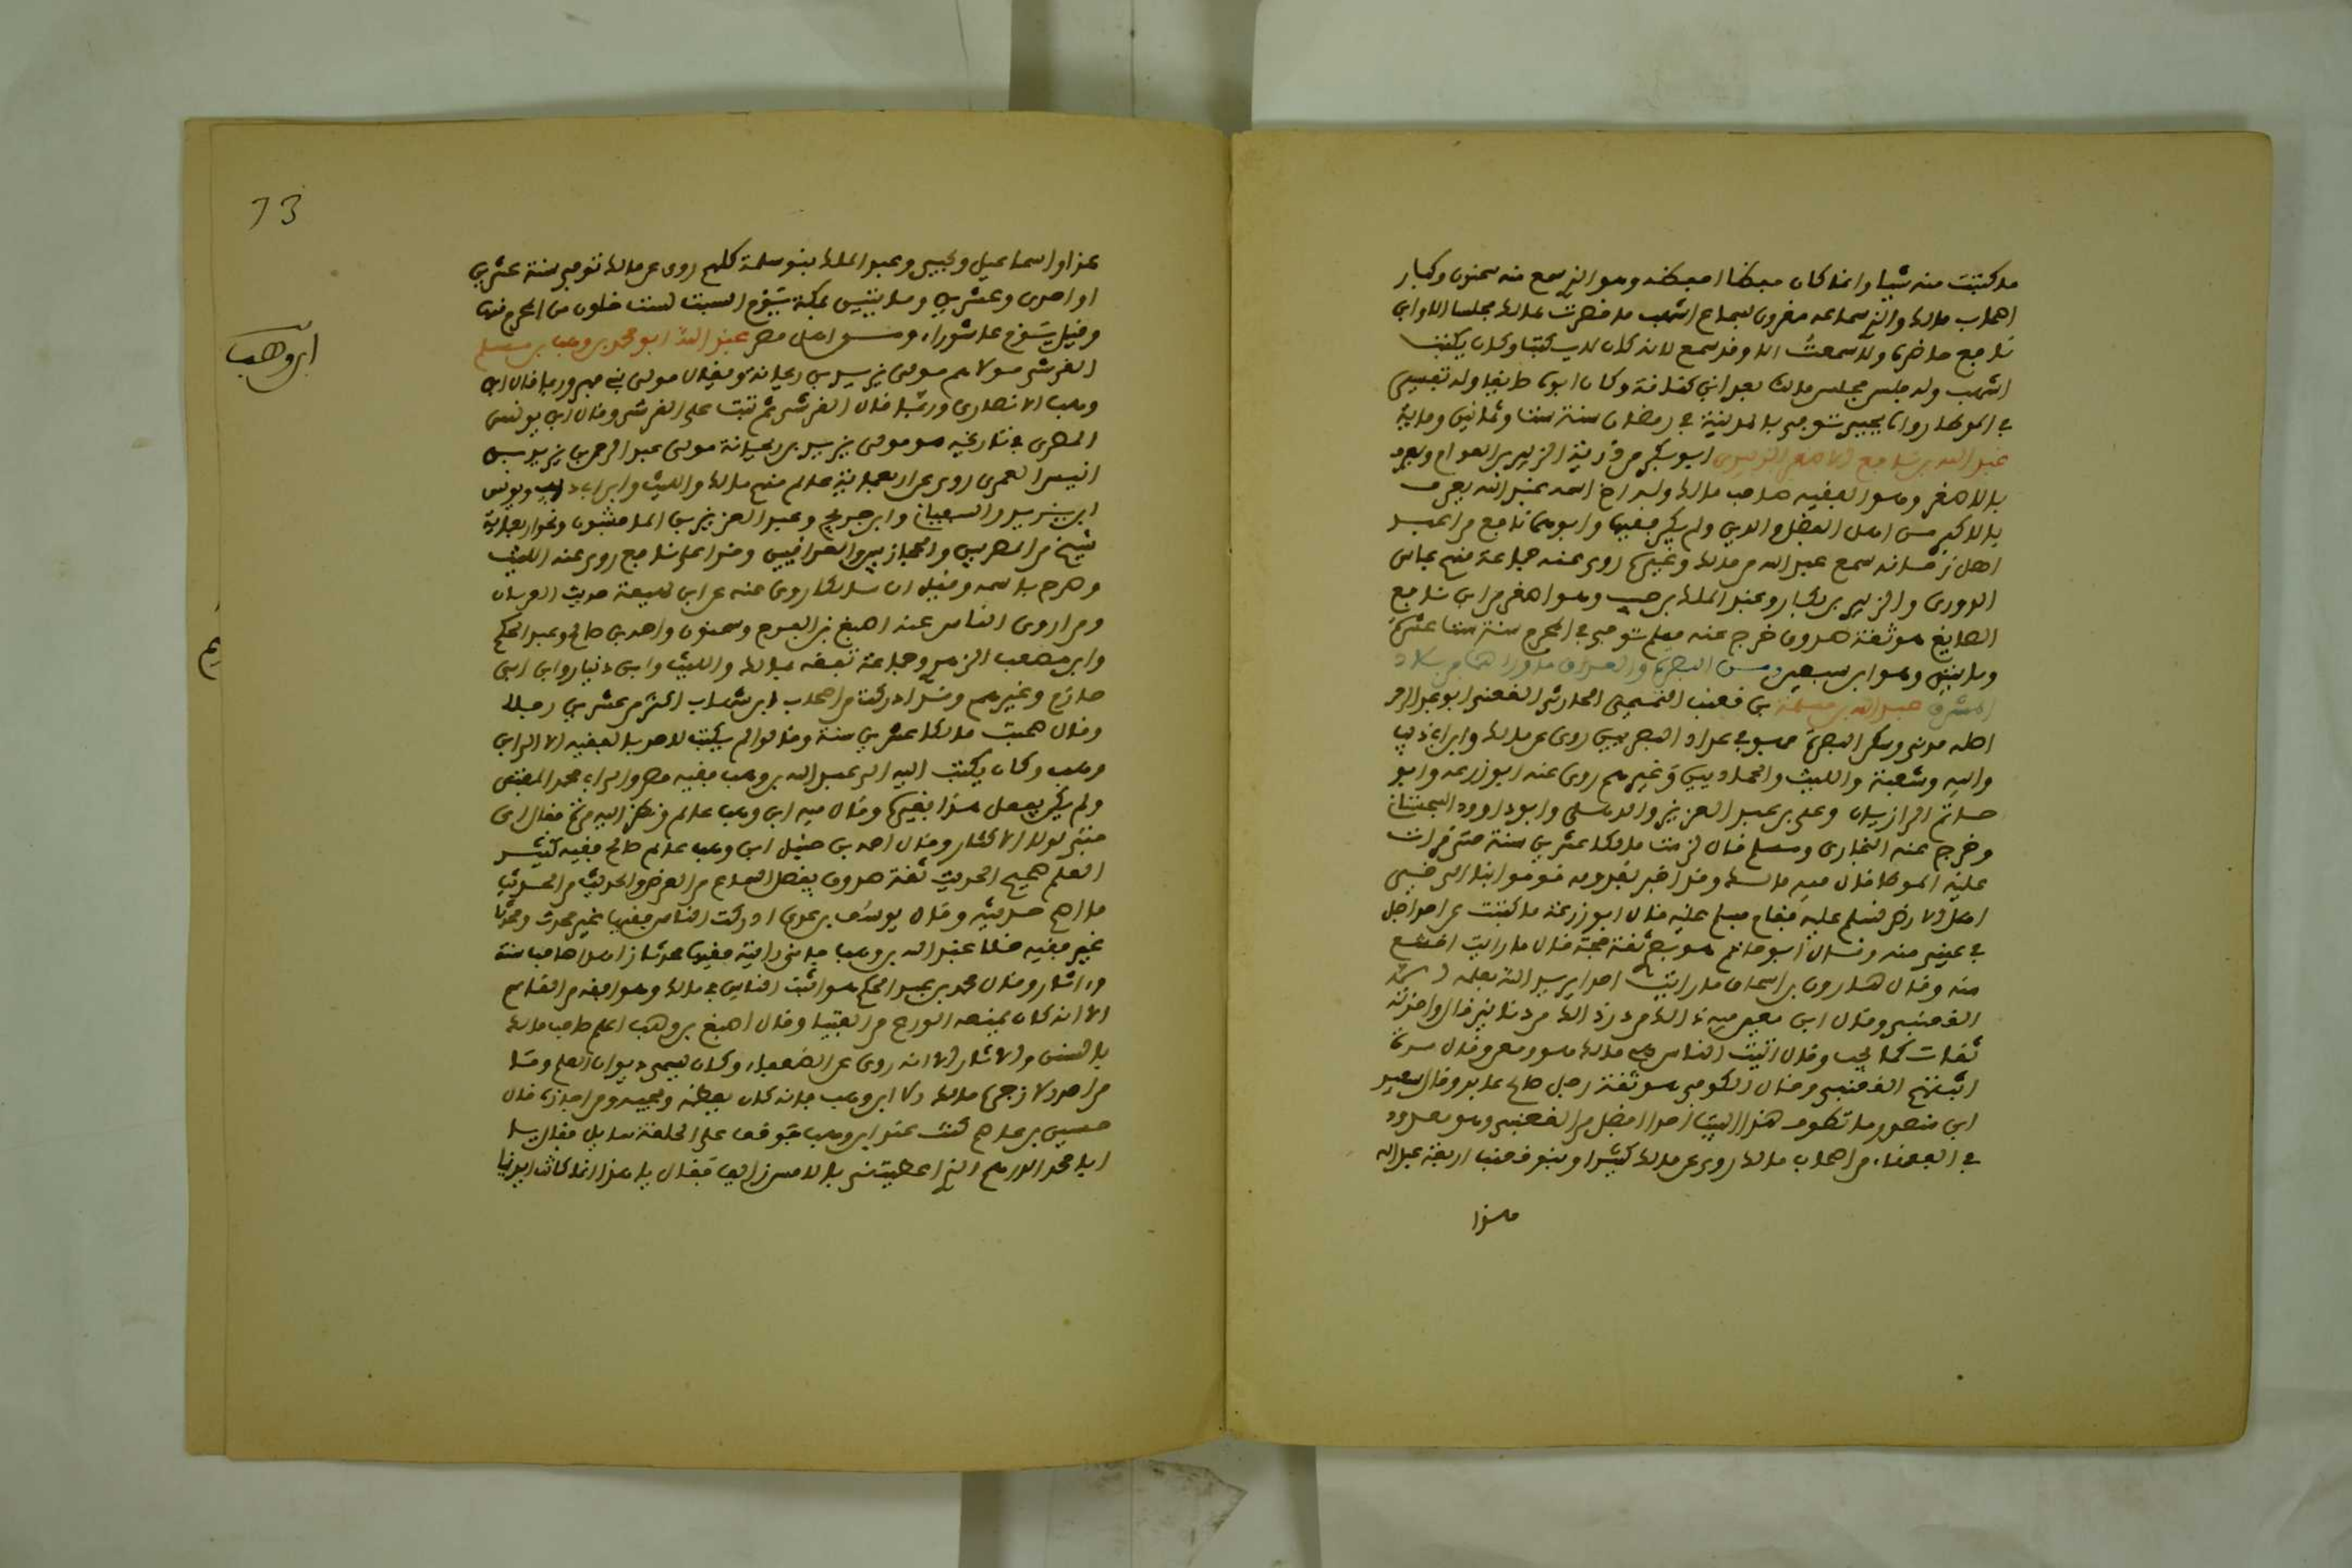 ما كتبت منه شيا وانما كان حفظا احفظه وهو الذي سمع منه سحنون وكبار
اصحاب مالك والذي سماعه مقرون بسماع اشهب ما حضرت لمالك مجلسا الا وابن
نافع حاضره ولا سمعت الا وقد سمع لانه كان لا يكتب وكان يكتب
اشهب وله جلس مجلس مالك بعد ابن كنانة وكان ابوه صايغا وله تفسير
في الموطا رواه يحيى توفي بالمدينة في رمضان سنة ست وثمانين ومائة
عبد الله بن نافع الاصغر الزبيري ابو بكر من ذرية الزبير بن العوام ويعرف
بالاصغر وهو الفقيه صاحب مالك وله اخ اسمه عبد الله يعرف
بالاكبر من اهل الفضل والدين ولم يكن فقيها وابوهما نافع من اعبد
اهل زمانه سمع عبد الله من مالك وغيره روى عنه جماعة منهم عباس
الدوري والزبير بن بكار وعبد الملك بن حبيب وهو اصغر من ابن نافع
الصايغ هو ثقة صدوق خرج عنه مسلم توفي في المحرم سنة ست عشرة
ومائتين وهو ابن سبعين ومن البصرة والعراق وما وراءهما من بلاد
المشرق عبد الله بن مسلمة بن قعنب التميمي الحارثي القعنبي ابو عبد الرحمن
اصله مدني وسكن البصرة فهو في عداد البصريين روى عن مالك وابن ابي ذيب
وابيه وشعبة والليث والحمادين وغيرهم روى عنه ابو زرعة وابو
حاتم الرازيان وعلي بن عبد العزيز والذهلي وابو داوود السجستاني
وخرج عنه البخاري ومسلم قال لزمت مالكا عشرين سنة حتى قرات
عليه الموطا قال فيه مالك وقد اخبر بقدومه قوموا بنا الى خير
اهل الارض نسلم عليه فقام فسلم عليه قال ابو زرعة ما كتبت عن احد اجل
في عيني منه وقال ابو حاتم هو بصري ثقة حجة قال ما رايت اخشع
منه وقال هارون بن اسحاق ما رايت احدا يريد الله بعلمه الا
القعنبي وقال ابن معين
ثقات كما يجب وقال اثبت الناس في مالك هو ومعن وقال مرة
اثبتهم القعنبي وقال الكوفي هو ثقة رجل صالح عابد وقال سعيد
ابن منصور ما تطوف هذا البيت احد افضل من القعنبي وهو معدود
في الفقهاء من اصحاب مالك روى عن مالك كثيرا وبنو قعنب اربعة عبد الله
هذا
هذا واسماعيل ويحيى وعبد الملك بنو مسلمة كلهم روى عن مالك توفي سنة عشرين
او احدى وعشرين ومائتين بمكة يوم السبت لست خلون من المحرم منها
وقيل يوم عاشوراء ومن اهل مصر عبد الله ابو محمد بن وهب بن مسلم
القرشي مولاهم مولى يزيد بن ريحانة ويقال مولى بني فهر وربما قال ابن
وهب الانصاري وربما قال القرشي ثم ثبت على القرشي وقال ابن يونس
المصري في تاريخه هو مولى يزيد بن ريحانة مولى عبد الرحمن بن يزيد بن
انيس الفهري روى عن اربعمائة عالم منهم مالك والليث وابن ابي ذيب ويونس
ابن يزيد والسفيانان وابن جريج وعبد العزيز بن الماجشون ونحو اربعمائة
شيخ من المصريين والحجازيين والعراقيين وقرا على نافع روى عنه الليث
وصرح باسمه وقيل ان مالكا روى عنه عن ابن لهيعة حديث العربان
وممن روى الناس عنه اصبغ بن الفرج وسحنون واحمد بن صالح وعبد الحكم
وابو مصعب الزهري وجماعة تفقه بمالك والليث وابن دينار وابن ابي
حازم وغيرهم وقال ادركت من اصحاب ابن شهاب اكثر من عشرين رجلا
وقال صحبت مالكا عشرين سنة وقالوا لم يكتب لاحد بالفقيه الا الى ابن
وهب وكان يكتب اليه الى عبد الله بن وهب فقيه مصر والى ابي محمد المفتي
ولم يكن يفعل هذا بغيره وقال فيه ابن وهب عالم ونظر اليه مرة فقال اي
فتى لولا الاكثار وقال احمد بن حنبل ابن وهب عالم صالح فقيه كثير
العلم صحيح الحديث ثقة صدوق يفصل السماع من العرض والحديث من الحديث
ما اصح حديثه وقال يوسف بن عدي ادركت الناس فقيها غير محدث ومحدثا
غير فقيه خلا عبد الله بن وهب فاني رايته فقيها محدثا زاهدا صاحب سنة
واثار وقال محمد بن عبد الحكم هو اثبت الناس في مالك وهو افقه من القاسم
الا انه كان يمنعه الورع من الفتيا وقال اصبغ بن وهب اعلم اصحاب مالك
بالسنن والاثار الا انه روى عن الضعفاء وكان يسمى ديوان العلم وما
من احد الا زجره مالك الا ابن وهب فانه كان يعظمه ويحبه ومن اجازه قال
حسين بن عاصم كنت عند ابن وهب فوقف على الحلقة سايل فقال يا
ابا محمد الدرهم الذي اعطيتني بالامس زايف فقال يا هذا انما كانت ايدينا
ابن وهب
73